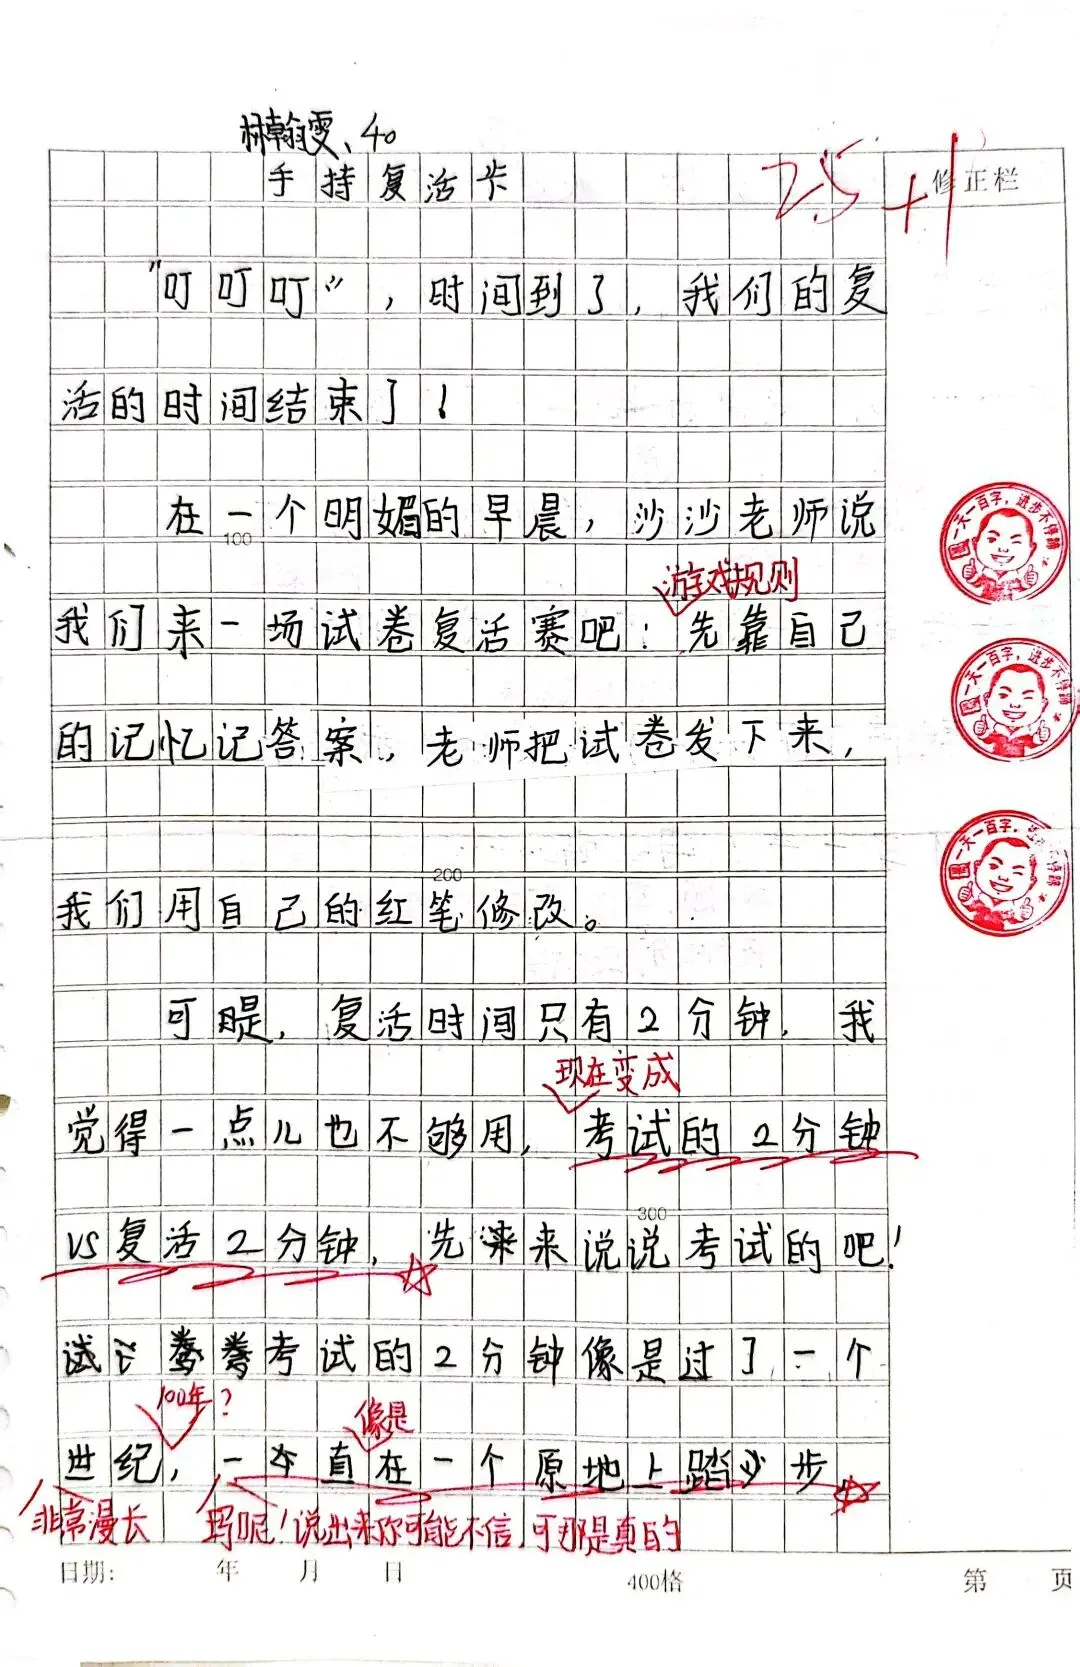 林翰雯、40
手持复活卡
25 +1
修正栏
"叮叮叮",时间到了,我们的复
活的时间结束了!
在一个明媚的早晨,沙沙老师说
100
游戏规则
我们来一场试卷复活赛吧:先靠自己
的记忆记答案,老师把试卷发下来,
200
我们用自己的红笔修改。
可是,复活时间只有2分钟,我
现在变成
觉得一点儿也不够用,考试的2分钟
300
vs复活2分钟,先来说说考试的吧!
考试的2分钟像是过了一个
100年?
像是
世纪,一直在一个原地上踏步
非常漫长
吗呢!说出来你可能不信,可那是真的
日期: 年 月 日
400格
第 页
一天一百字,进步不停蹄
一天一百字,进步不停蹄
一天一百字,进步不停蹄